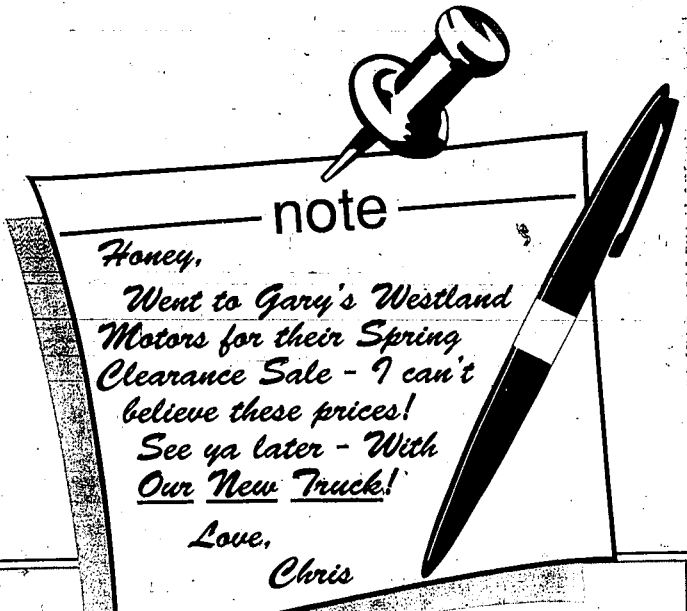 note
Honey,
Went to Gary's Westland
Motors for their Spring
Clearance Sale - I can't
believe these prices!
See ya later - With
Our New Truck!
Love,
Chris